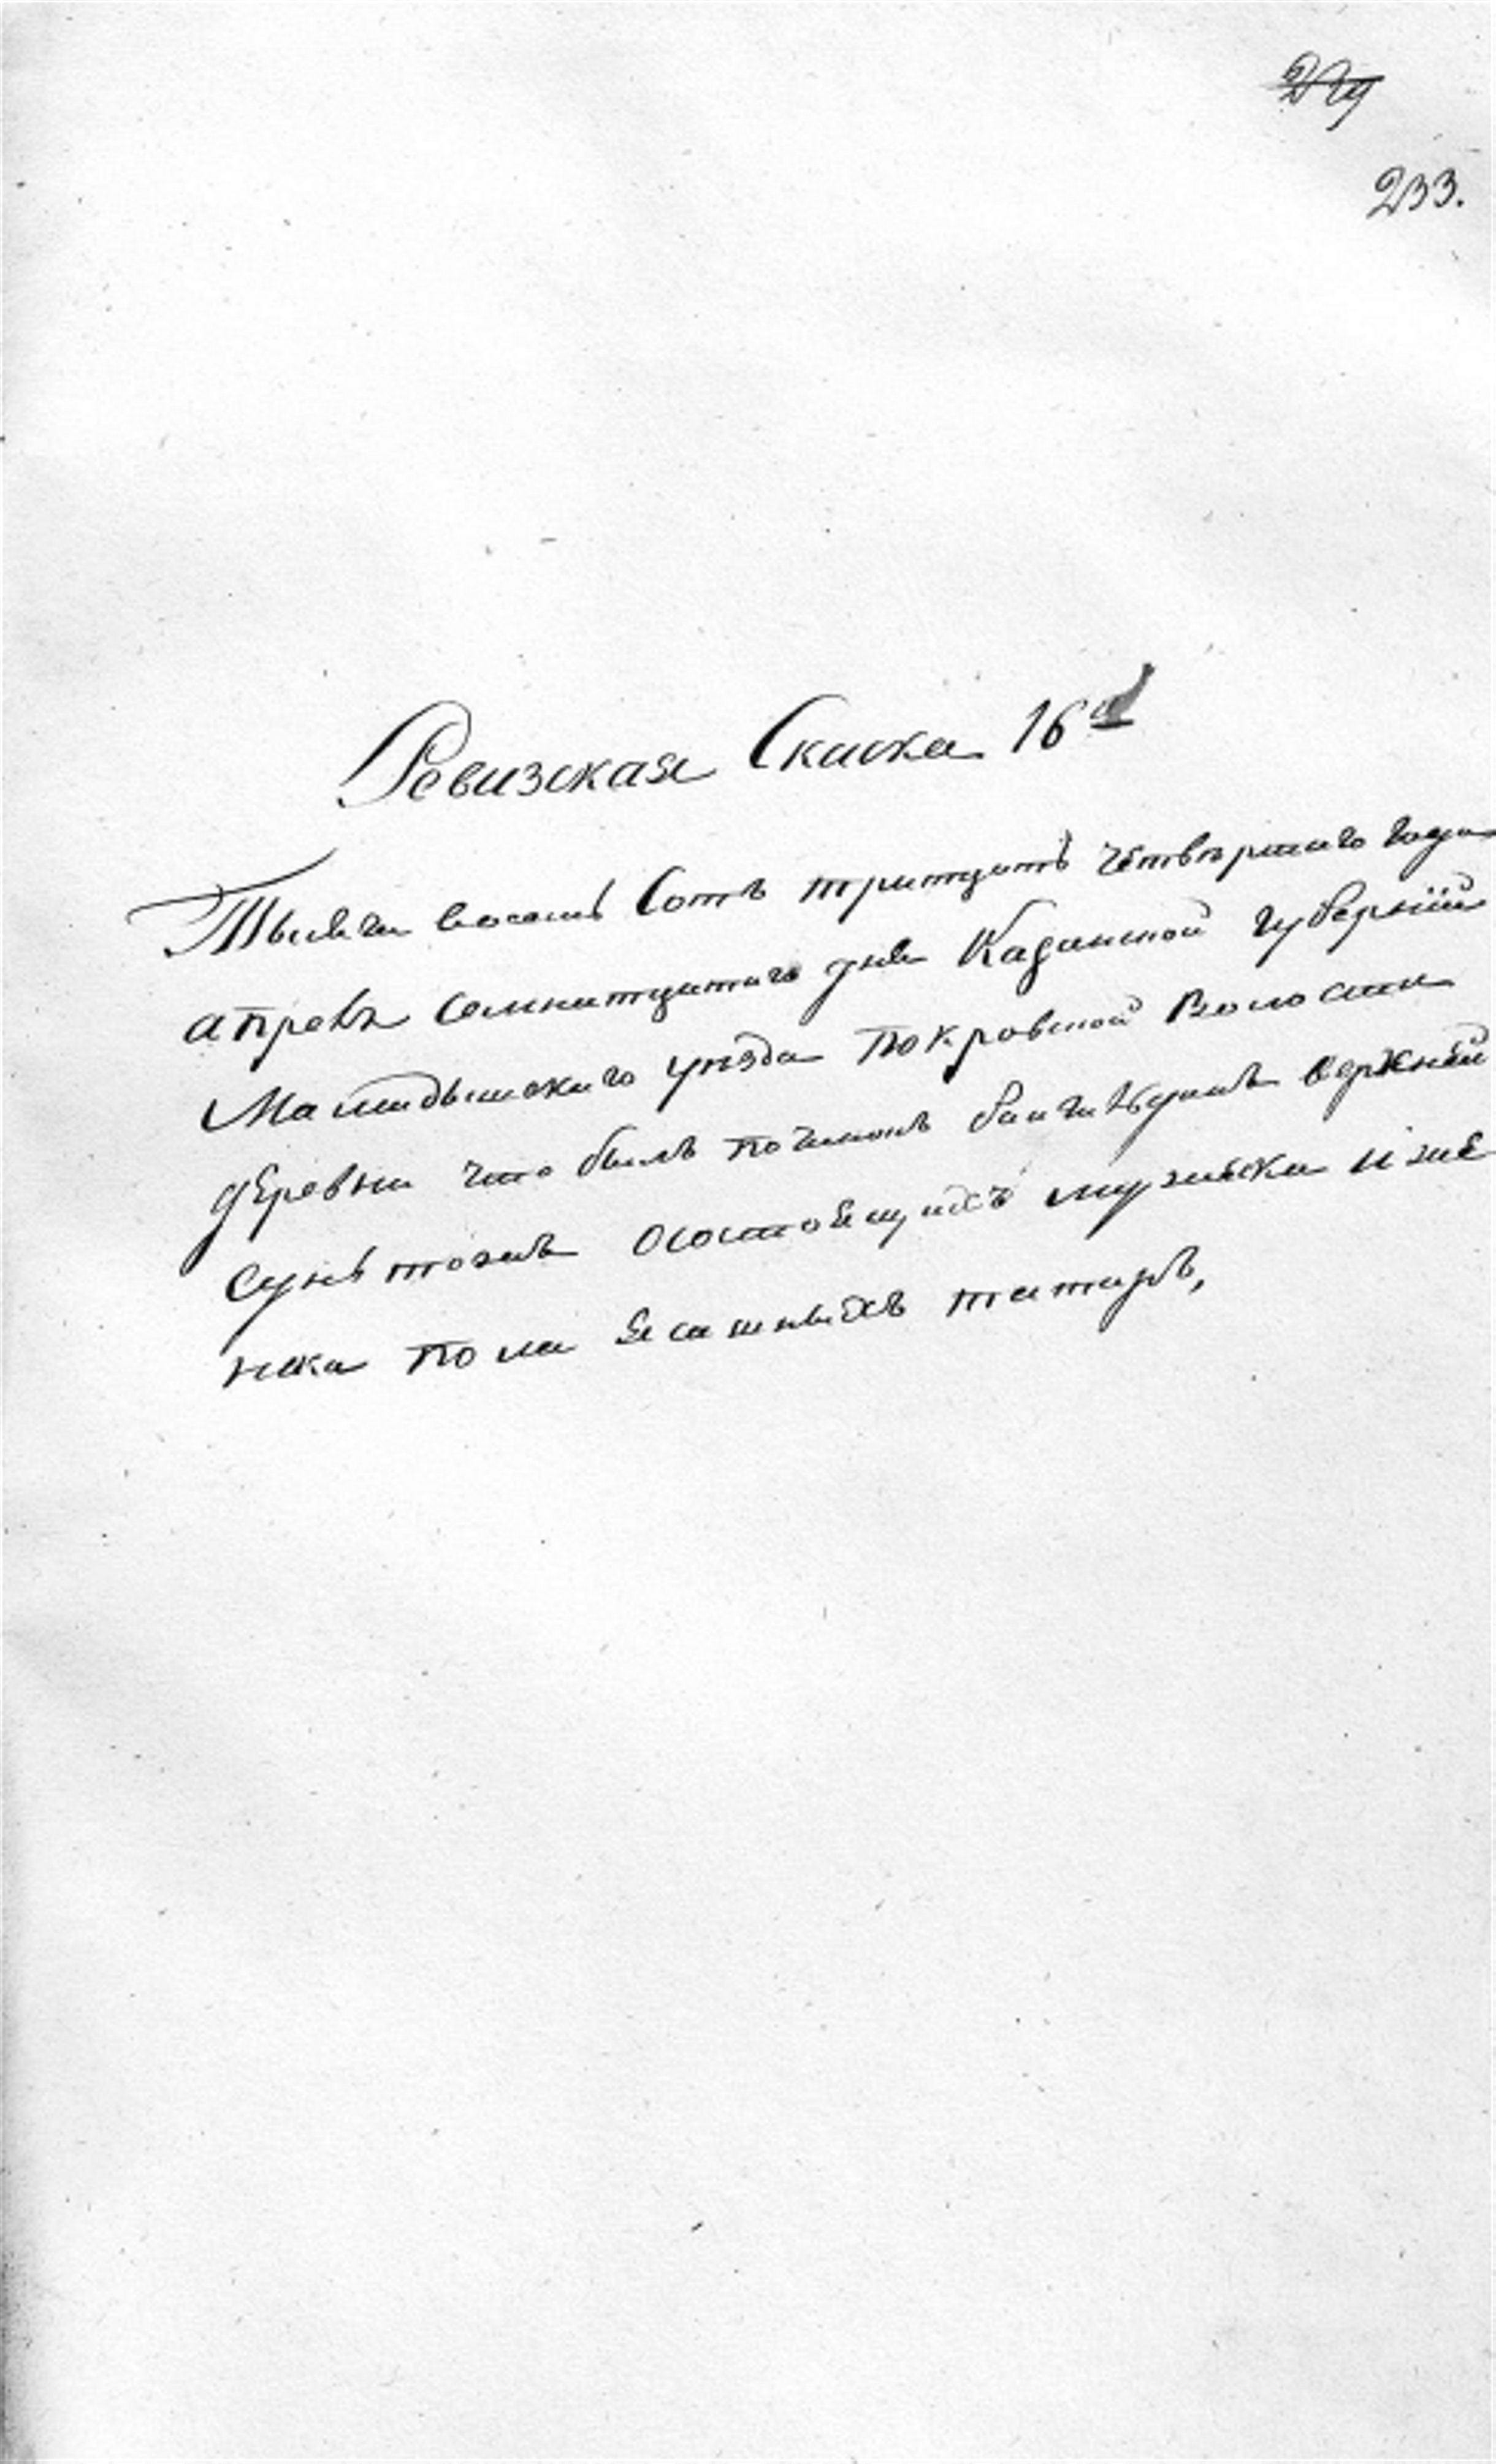 233.
Ревизская Скаска 16ая
Тысеча восемь Сотъ тритцать четвертаго года
апреля семнатцатаго дня Казанской губернии
Мамадышскаго уезда Покровской волости
деревни что былъ починокъ верхней
сунь тожъ осостоящихъ мужеска и же
нска пола Ясашныхъ татаръ,